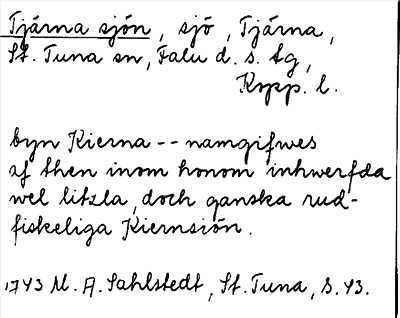 Tjärna sjön, sjö, Tjärna,
St. Tuna sn, Falu d. s. tg,
Kopp. l.
byn Kierna -- namgifwes
af then inom honom inhwerfda
wel litzla, doch ganska rud-
fiskeliga Kiernsiön.
1743 M. A. Sahlstedt, St. Tuna, s. 43.